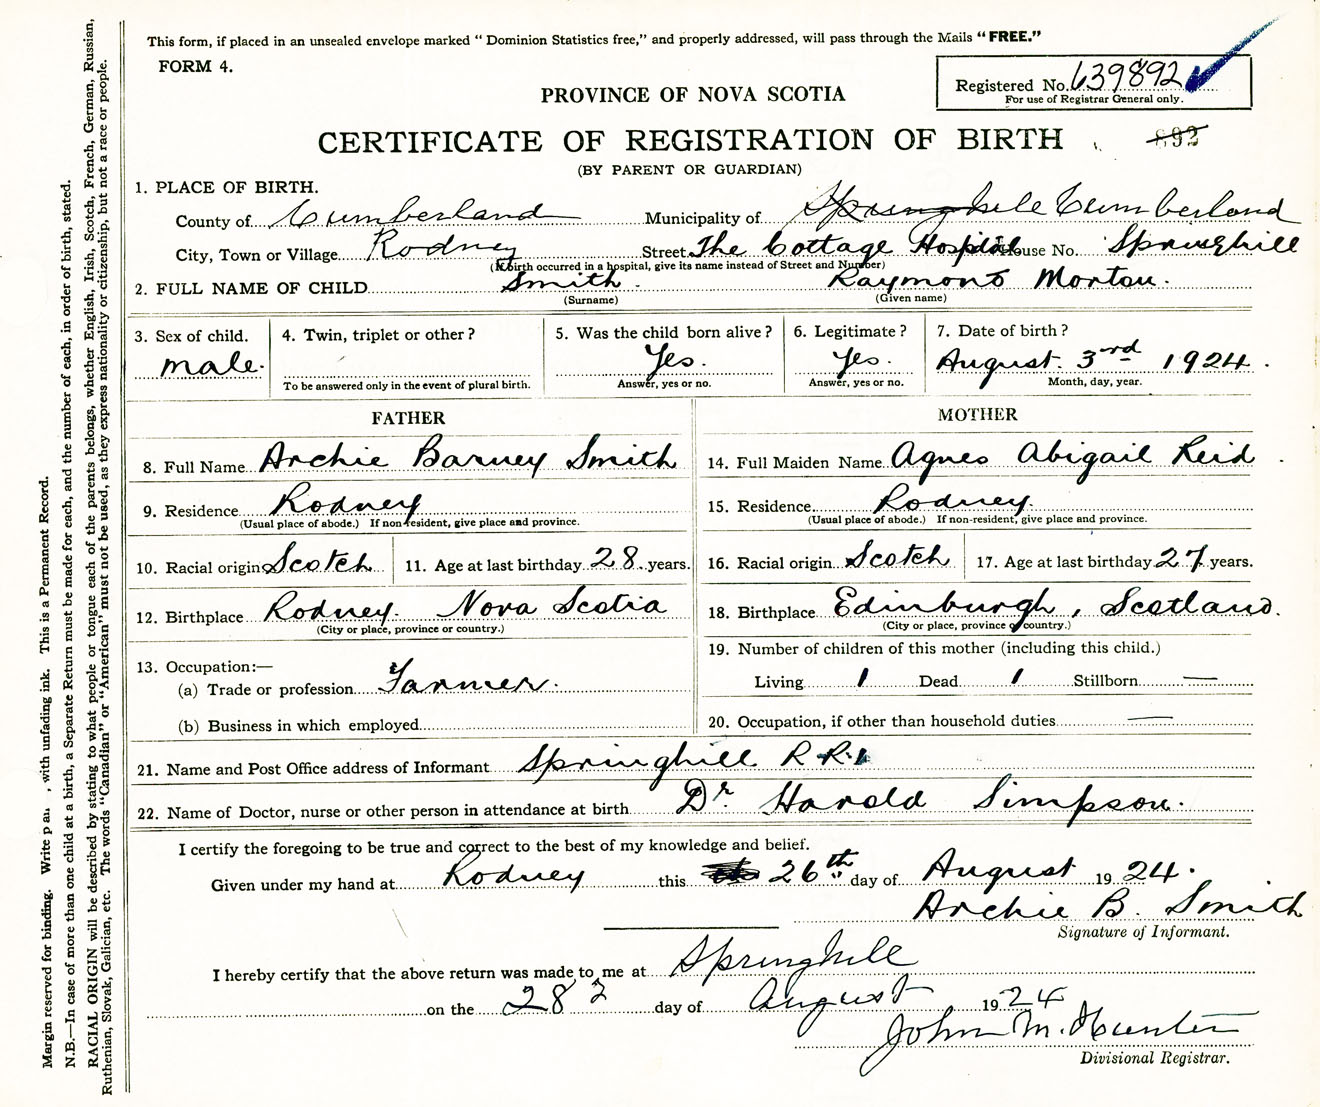 This form, if placed in an unsealed envelope marked " Dominion Statistics free," and properly addressed, will pass through the Mails "FREE."
FORM 4.
Registered No. 639892
For use of Registrar General only.
PROVINCE OF NOVA SCOTIA
CERTIFICATE OF REGISTRATION OF BIRTH
892
(BY PARENT OR GUARDIAN)
1. PLACE OF BIRTH.
County of Cumberland Municipality of Springhill Cumberland
City, Town or Village Rodney Street The Cottage Hospital House No. Springhill
(If birth occurred in a hospital, give its name instead of Street and Number)
2. FULL NAME OF CHILD Smith Raymond Morton.
(Surname) (Given name)
3. Sex of child. 4. Twin, triplet or other? 5. Was the child born alive? 6. Legitimate? 7. Date of birth?
male. Yes. Yes. August 3rd 1924.
To be answered only in the event of plural birth. Answer, yes or no. Answer, yes or no. Month, day, year.
FATHER MOTHER
8. Full Name Archie Barney Smith 14. Full Maiden Name Agnes Abigail Reid.
9. Residence Rodney 15. Residence Rodney.
(Usual place of abode.) If non-resident, give place and province. (Usual place of abode.) If non-resident, give place and province.
10. Racial origin Scotch 11. Age at last birthday 28 years. 16. Racial origin Scotch 17. Age at last birthday 27 years.
12. Birthplace Rodney. Nova Scotia 18. Birthplace Edinburgh, Scotland.
(City or place, province or country.) (City or place, province or country.)
13. Occupation:— 19. Number of children of this mother (including this child.)
(a) Trade or profession Farmer. Living 1 Dead 1 Stillborn —
(b) Business in which employed 20. Occupation, if other than household duties —
21. Name and Post Office address of Informant Springhill R.R.1
22. Name of Doctor, nurse or other person in attendance at birth Dr. Harold Simpson.
I certify the foregoing to be true and correct to the best of my knowledge and belief.
Given under my hand at Rodney this 26th day of August 1924.
Archie B. Smith
Signature of Informant.
I hereby certify that the above return was made to me at Springhill
on the 28 day of August 1924
John M. Hunter
Divisional Registrar.
Margin reserved for binding. Write , with unfading ink. This is a Permanent Record.
N.B.—In case of more than one child at a birth, a Separate Return must be made for each, and the number of each, in order of birth, stated.
RACIAL ORIGIN will be described by stating to what people or tongue each of the parents belongs, whether English, Irish, Scotch, French, German, Russian,
Ruthenian, Slovak, Galician, etc. The words "Canadian" or "American" must not be used, as they express nationality or citizenship, but not a race or people.